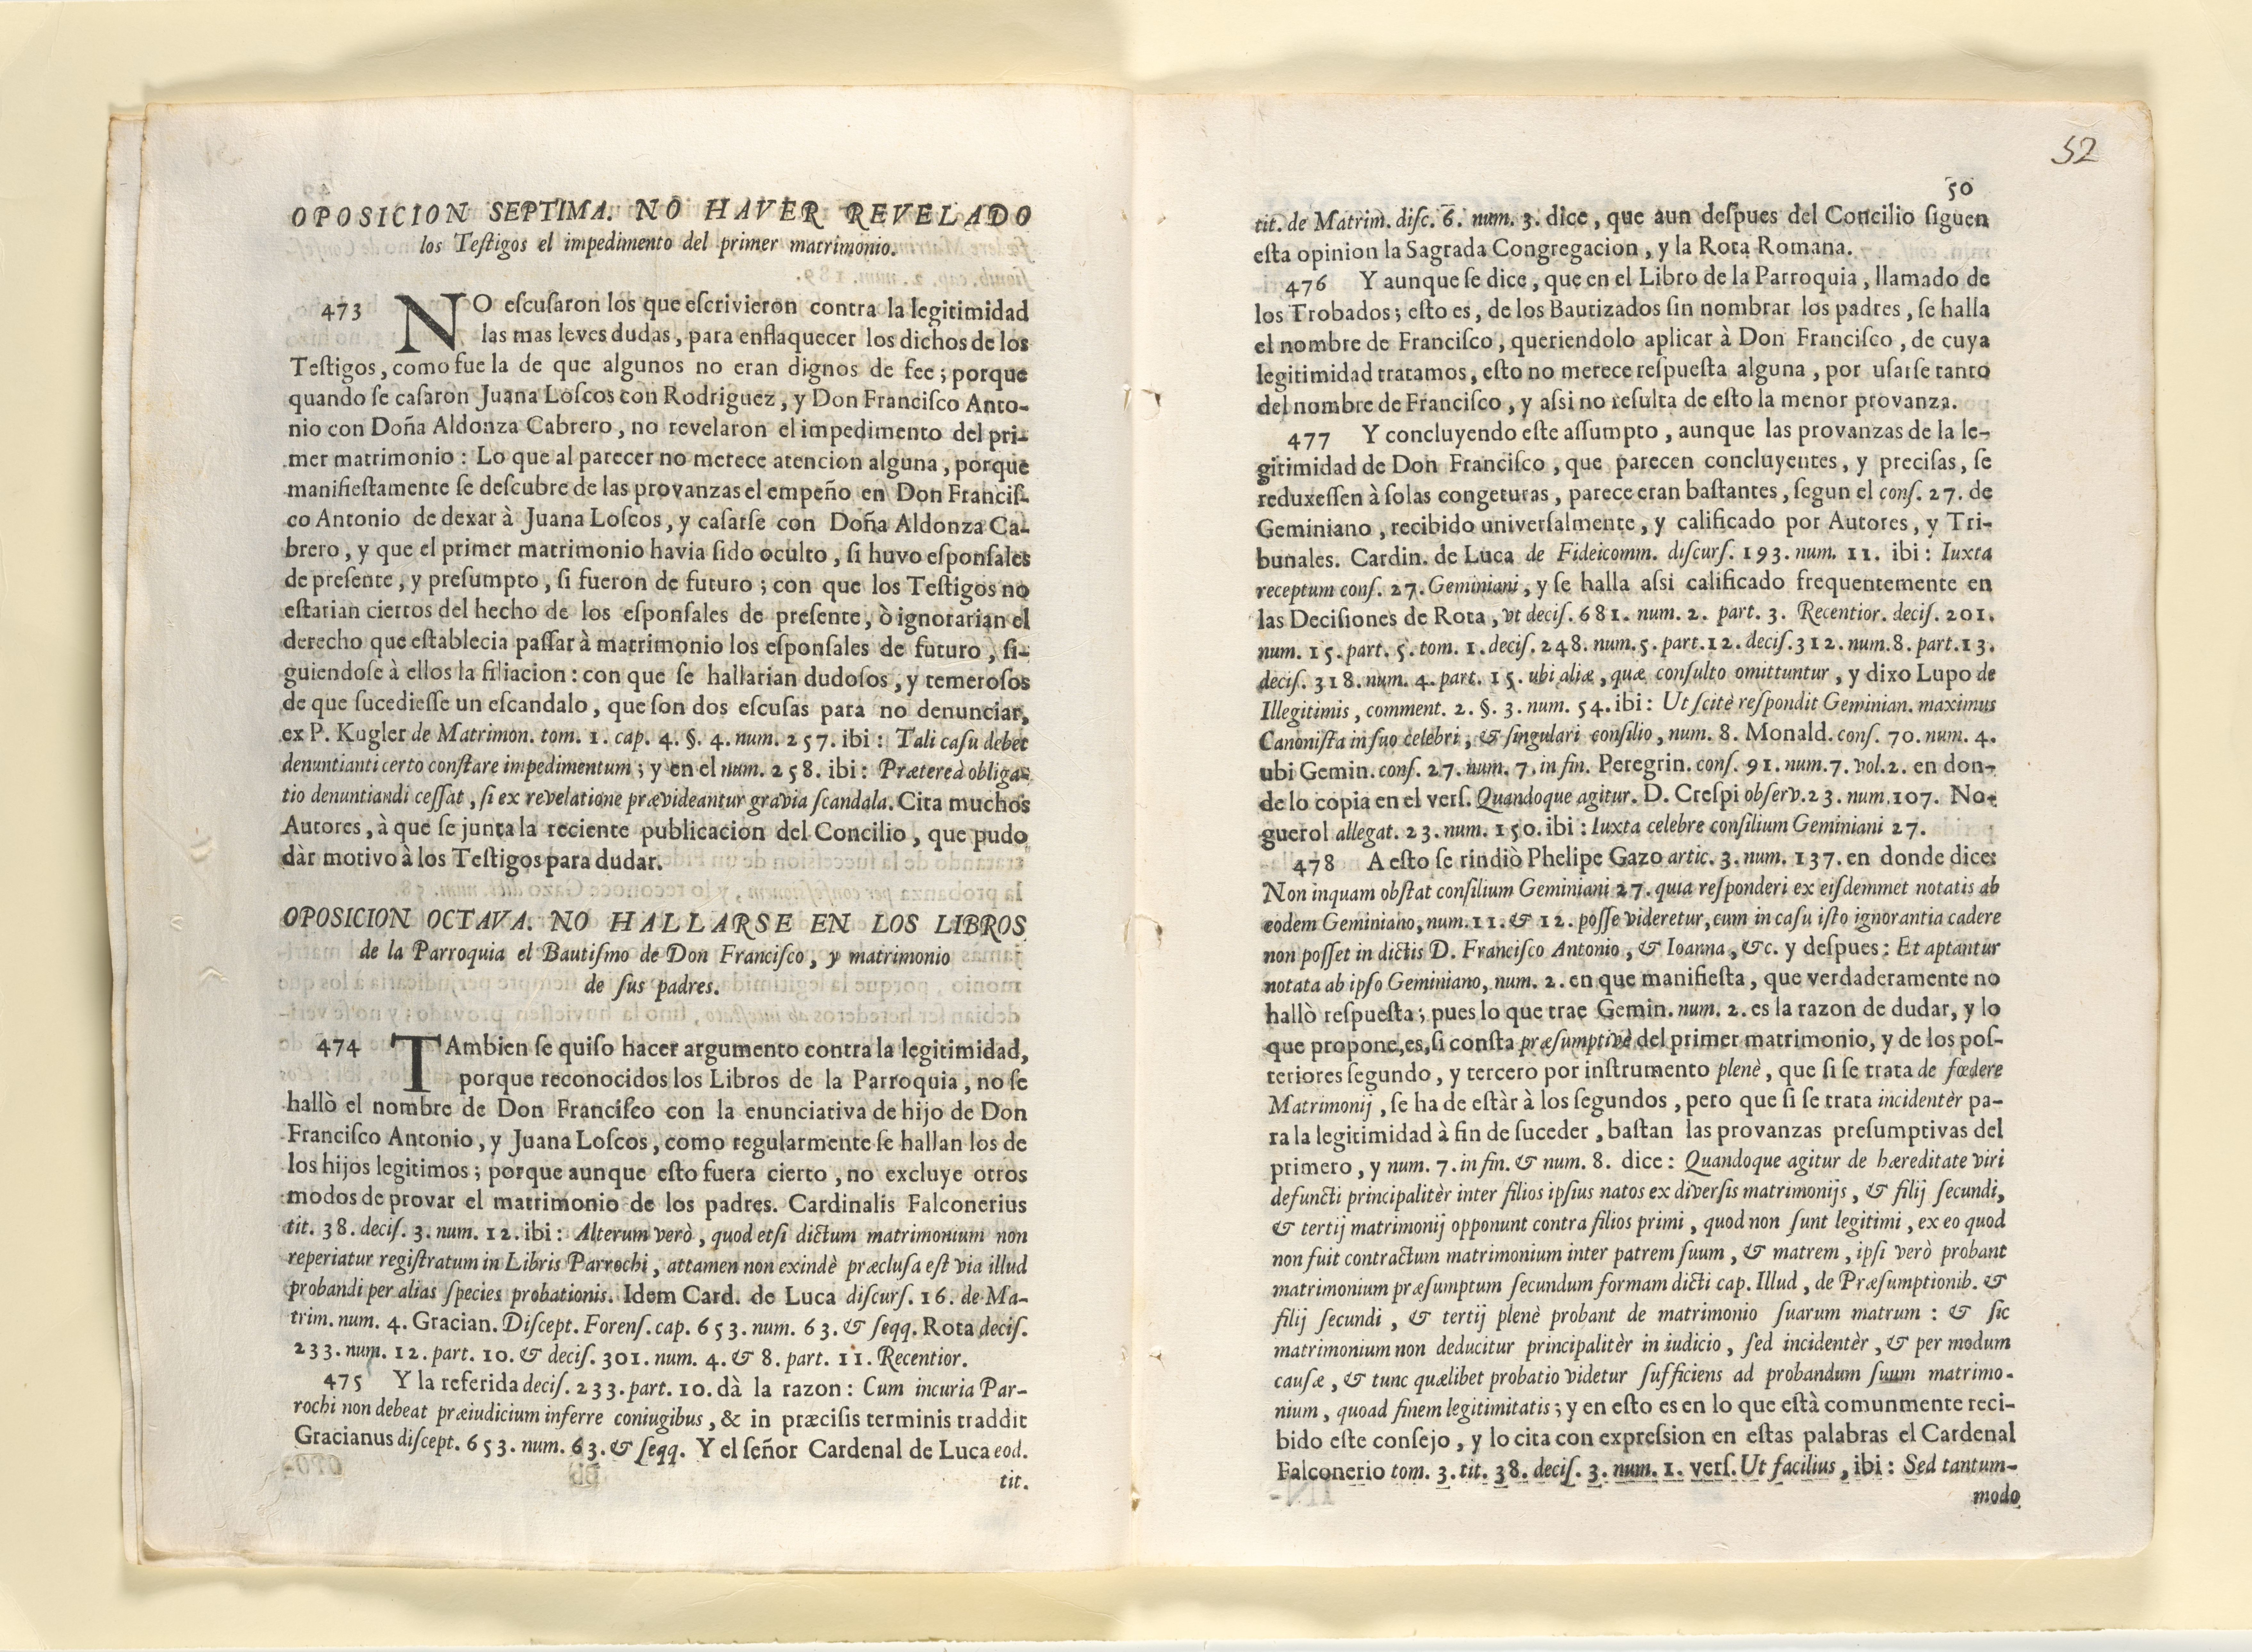 OPOSICION SEPTIMA. NO HAVER REVELADO
los Teſtigos el impedimento del primer matrimonio.
473 NO eſcuſaron los que eſcrivieron contra la legitimidad
las mas leves dudas, para enflaquecer los dichos de los
Teſtigos, como fue la de que algunos no eran dignos de fee; porque
quando ſe caſaron Juana Loſcos con Rodriguez, y Don Franciſco Anto-
nio con Doña Aldonza Cabrero, no revelaron el impedimento del pri-
mer matrimonio: Lo que al parecer no merece atencion alguna, porque
manifieſtamente ſe deſcubre de las provanzas el empeño en Don Franciſ-
co Antonio de dexar à Juana Loſcos, y caſarſe con Doña Aldonza Ca-
brero, y que el primer matrimonio havia ſido oculto, ſi huvo eſponſales
de preſente, y preſumpto, ſi fueron de futuro; con que los Teſtigos no
eſtarian ciertos del hecho de los eſponſales de preſente, ò ignorarian el
derecho que eſtablecia paſſar à matrimonio los eſponſales de futuro, ſi-
guiendoſe à ellos la filiacion: con que ſe hallarian dudoſos, y temeroſos
de que ſucedieſſe un eſcandalo, que ſon dos eſcuſas para no denunciar,
ex P. Kugler de Matrimon. tom. 1. cap. 4. §. 4. num. 257. ibi: Tali caſu debet
denuntianti certo conſtare impedimentum; y en el num. 258. ibi: Prætereà obliga-
tio denuntiandi ceſſat, ſi ex revelatione prævideantur gravia ſcandala. Cita muchos
Autores, à que ſe junta la reciente publicacion del Concilio, que pudo
dàr motivo à los Teſtigos para dudar.
OPOSICION OCTAVA. NO HALLARSE EN LOS LIBROS
de la Parroquia el Bautiſmo de Don Franciſco, y matrimonio
de ſus padres.
474 TAmbien ſe quiſo hacer argumento contra la legitimidad,
porque reconocidos los Libros de la Parroquia, no ſe
hallò el nombre de Don Franciſco con la enunciativa de hijo de Don
Franciſco Antonio, y Juana Loſcos, como regularmente ſe hallan los de
los hijos legitimos; porque aunque eſto fuera cierto, no excluye otros
modos de provar el matrimonio de los padres. Cardinalis Falconerius
tit. 38. deciſ. 3. num. 12. ibi: Alterum verò, quod etſi dictum matrimonium non
reperiatur regiſtratum in Libris Parrochi, attamen non exindè præcluſa eſt via illud
probandi per alias ſpecies probationis. Idem Card. de Luca diſcurſ. 16. de Ma-
trim. num. 4. Gracian. Diſcept. Forenſ. cap. 653. num. 63. & ſeqq. Rota deciſ.
233. num. 12. part. 10. & deciſ. 301. num. 4. & 8. part. 11. Recentior.
475 Y la referida deciſ. 233. part. 10. dà la razon: Cum incuria Par-
rochi non debeat præiudicium inferre coniugibus, & in præciſis terminis traddit
Gracianus diſcept. 653. num. 63. & ſeqq. Y el ſeñor Cardenal de Luca eod.
tit.
52
50
tit. de Matrim. diſc. 6. num. 3. dice, que aun deſpues del Concilio ſiguen
eſta opinion la Sagrada Congregacion, y la Rota Romana.
476 Y aunque ſe dice, que en el Libro de la Parroquia, llamado de
los Trobados; eſto es, de los Bautizados ſin nombrar los padres, ſe halla
el nombre de Franciſco, queriendolo aplicar à Don Franciſco, de cuya
legitimidad tratamos, eſto no merece reſpueſta alguna, por uſarſe tanto
del nombre de Franciſco, y aſsi no reſulta de eſto la menor provanza.
477 Y concluyendo eſte aſſumpto, aunque las provanzas de la le-
gitimidad de Don Franciſco, que parecen concluyentes, y preciſas, ſe
reduxeſſen à ſolas congeturas, parece eran baſtantes, ſegun el conſ. 27. de
Geminiano, recibido univerſalmente, y calificado por Autores, y Tri-
bunales. Cardin. de Luca de Fideicomm. diſcurſ. 193. num. 11. ibi: Iuxta
receptum conſ. 27. Geminiani, y ſe halla aſsi calificado frequentemente en
las Deciſiones de Rota, vt deciſ. 681. num. 2. part. 3. Recentior. deciſ. 201.
num. 15. part. 5. tom. 1. deciſ. 248. num. 5. part. 12. deciſ. 312. num. 8. part. 13.
deciſ. 318. num. 4. part. 15. ubi aliæ, quæ conſulto omittuntur, y dixo Lupo de
Illegitimis, comment. 2. §. 3. num. 54. ibi: Ut ſcitè reſpondit Geminian. maximus
Canoniſta in ſuo celebri, & ſingulari conſilio, num. 8. Monald. conſ. 70. num. 4.
ubi Gemin. conſ. 27. num. 7. in fin. Peregrin. conſ. 91. num. 7. vol. 2. en don-
de lo copia en el verſ. Quandoque agitur. D. Creſpi obſerv. 23. num. 107. No-
guerol allegat. 23. num. 150. ibi: Iuxta celebre conſilium Geminiani 27.
478 A eſto ſe rindiò Phelipe Gazo artic. 3. num. 137. en donde dice:
Non inquam obſtat conſilium Geminiani 27. quia reſponderi ex eiſdemmet notatis ab
eodem Geminiano, num. 11. & 12. poſſe videretur, cum in caſu iſto ignorantia cadere
non poſſet in dictis D. Franciſco Antonio, & Ioanna, &c. y deſpues: Et aptantur
notata ab ipſo Geminiano, num. 2. en que manifieſta, que verdaderamente no
hallò reſpueſta; pues lo que trae Gemin. num. 2. es la razon de dudar, y lo
que propone, es, ſi conſta præſumptivè del primer matrimonio, y de los poſ-
teriores ſegundo, y tercero por inſtrumento plenè, que ſi ſe trata de fœdere
Matrimonij, ſe ha de eſtàr à los ſegundos, pero que ſi ſe trata incidentèr pa-
ra la legitimidad à fin de ſuceder, baſtan las provanzas preſumptivas del
primero, y num. 7. in fin. & num. 8. dice: Quandoque agitur de hæreditate viri
defuncti principalitèr inter filios ipſius natos ex diverſis matrimonijs, & filij ſecundi,
& tertij matrimonij opponunt contra filios primi, quod non ſunt legitimi, ex eo quod
non fuit contractum matrimonium inter patrem ſuum, & matrem, ipſi verò probant
matrimonium præſumptum ſecundum formam dicti cap. Illud, de Præſumptionib. &
filij ſecundi, & tertij plenè probant de matrimonio ſuarum matrum: & ſic
matrimonium non deducitur principalitèr in iudicio, ſed incidentèr, & per modum
cauſæ, & tunc quælibet probatio videtur ſufficiens ad probandum ſuum matrimo-
nium, quoad finem legitimitatis; y en eſto es en lo que eſtà comunmente reci-
bido eſte conſejo, y lo cita con expreſsion en eſtas palabras el Cardenal
Falconerio tom. 3. tit. 38. deciſ. 3. num. 1. verſ. Ut facilius, ibi: Sed tantum-
modo